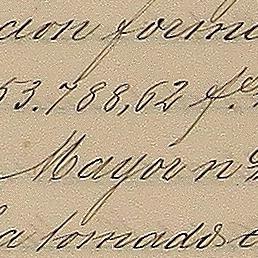 cion forma
53.788,62 f.
Mayor n
ha tomado e